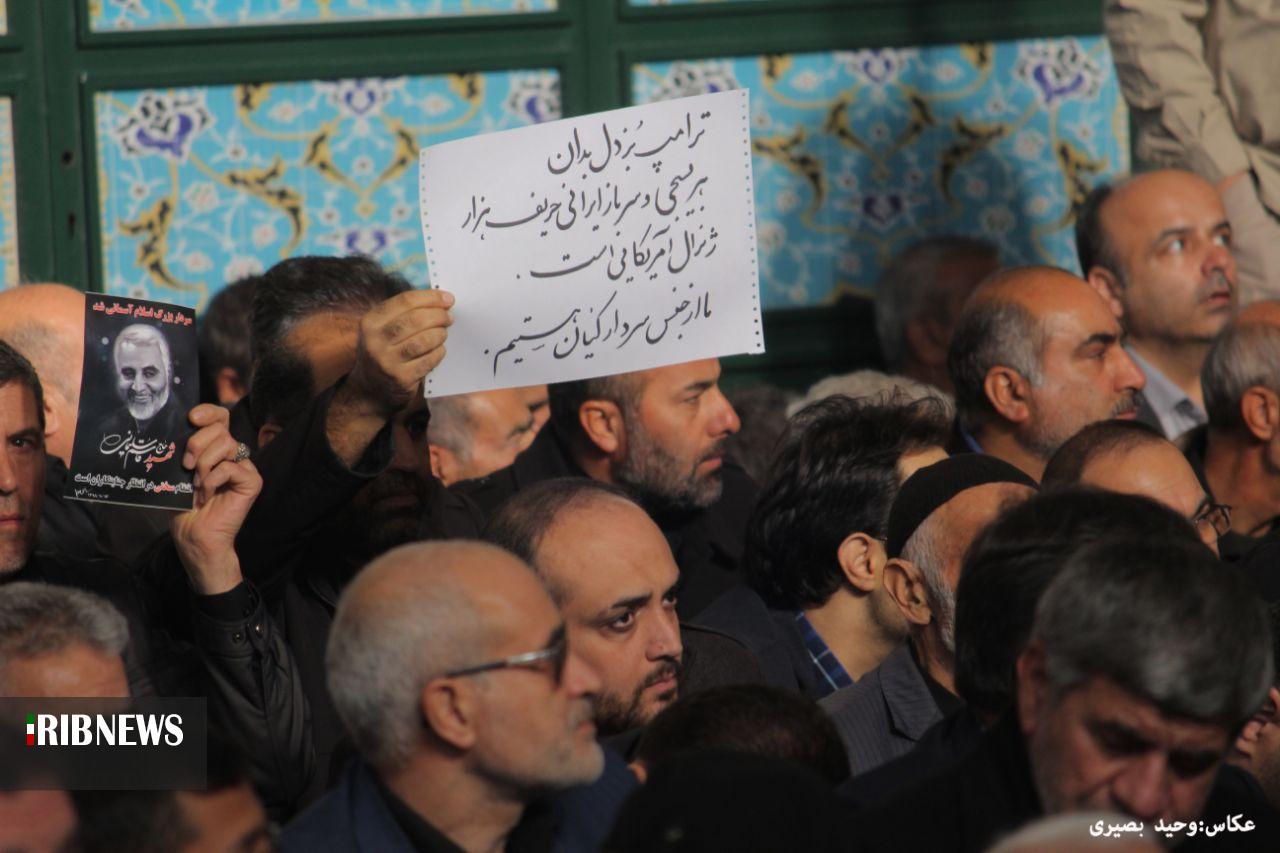 ترامپ بُزدل بدان
هر بسیجی و سرباز ایرانی حریف هزار
ژنرال آمریکایی است.
ما از جنس سردار کنیان هستیم.
سردار بزرگ اسلام آسمانی شد
شهید حاج قاسم سلیمانی
انتقام سختی در انتظار جنایتکاران است
IRIBNEWS
عکاس:وحید بصیری